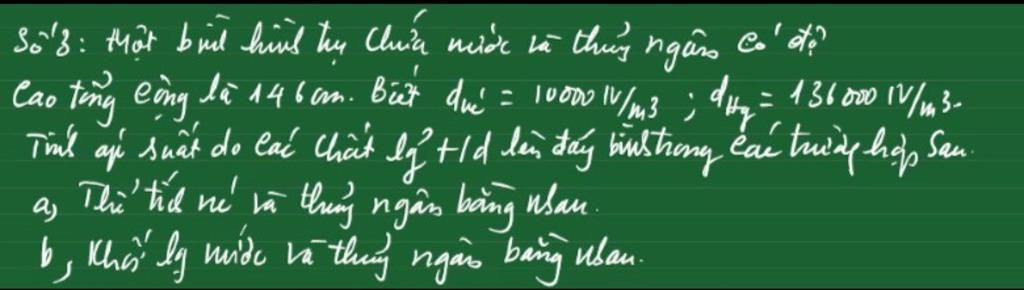 Số 3: Một bình hình trụ chứa nước và thuỷ ngân có độ
cao tổng cộng là 146 cm. Biết dnc = 10000 N/m3 ; dHg = 136000 N/m3.
Tính áp suất do các chất lg t/d lên đáy bình trong các trường hợp sau.
a, Thể tích nc và thuỷ ngân bằng nhau.
b, Khối lg nước và thuỷ ngân bằng nhau.